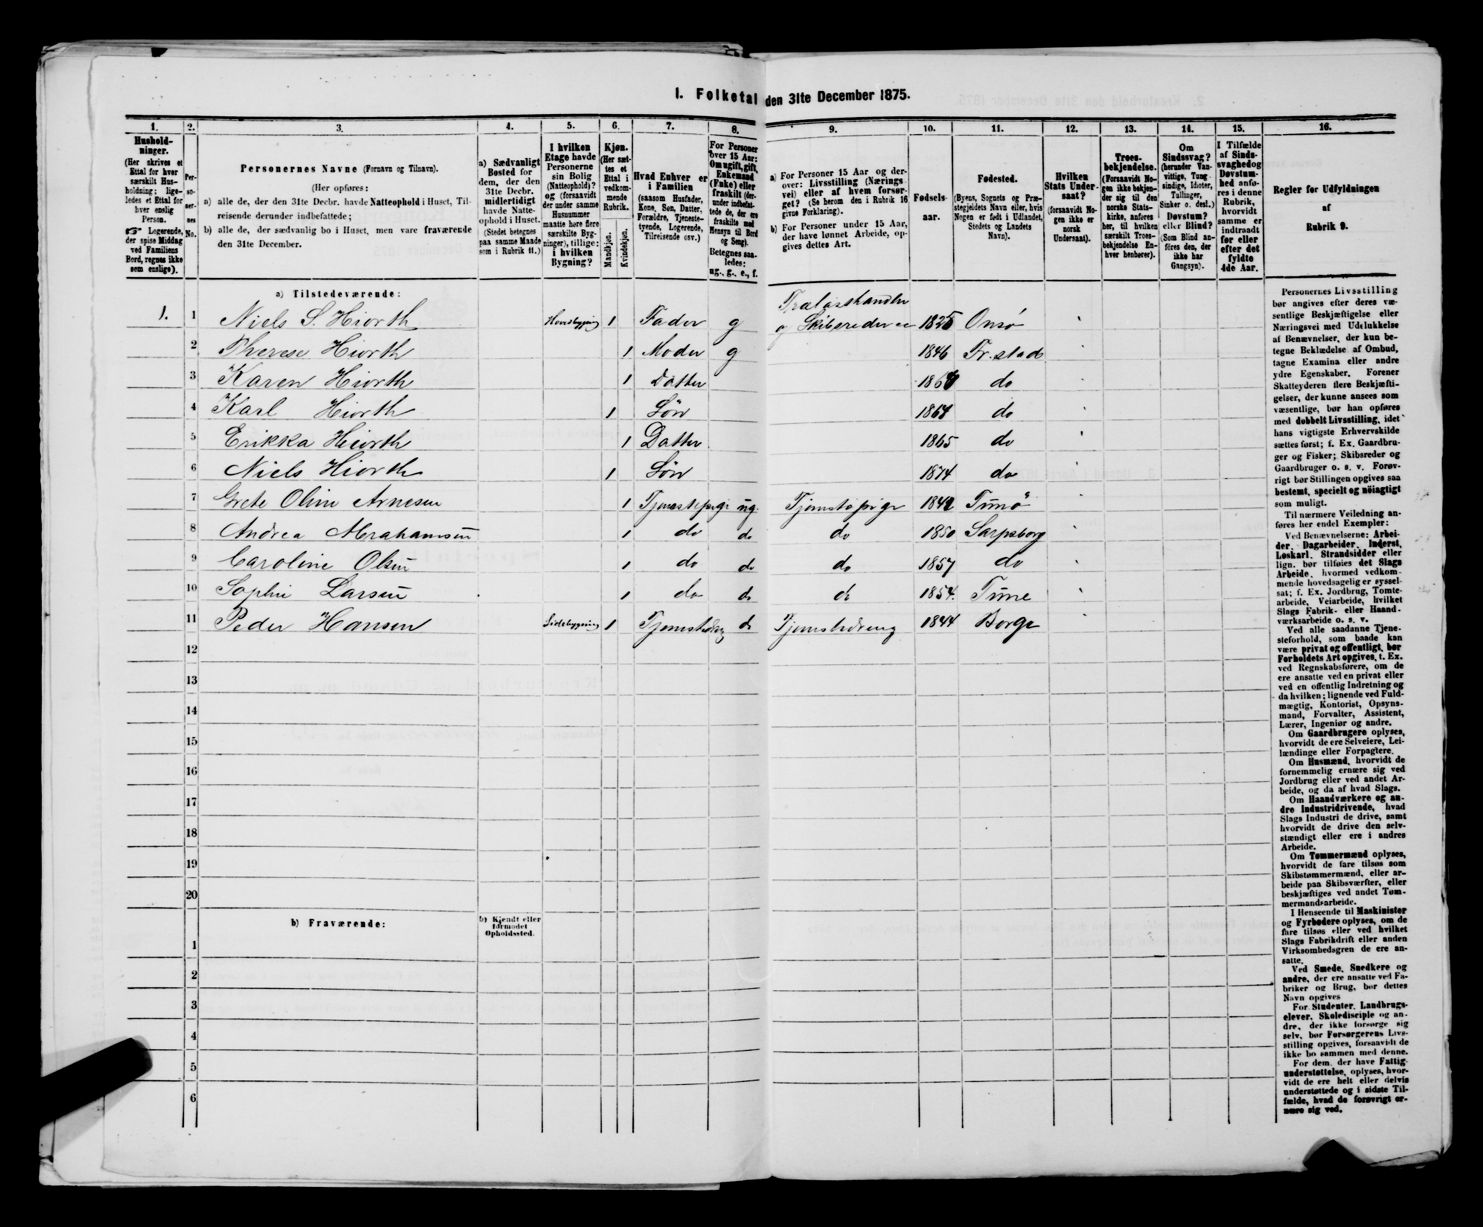 I. Folketal den 31te December 1875.
1. 2. 3. 4. 5. 6. 7. 8. 9. 10. 11. 12. 13. 14. 15. 16.
Husholdninger.
(Her skrives et
Ettal for hver
særskilt Husholdning;
ligeledes et Ettal for
hver enslig
Person.
☞ Logerende,
der spise Middag
ved Familiens
Bord, regnes ikke
som enslige).
Personernes No.
Personernes Navne (Fornavn og Tilnavn).
(Her opføres:
a) alle de, der den 31te Decbr. havde Natteophold i Huset, Tilreisende derunder indbefattede;
b) alle de, der sædvanlig bo i Huset, men vare fraværende
den 31te December.
a) Sædvanligt
Bosted for
dem, der den
31te Decbr.
midlertidigt
havde Natteophold i Huset.
(Stedet betegnes
paa samme Maade
som i Rubrik 11.)
I hvilken
Etage havde
Personerne
sin Bolig
(Natteophold)?
og (forsaavidt
der under samme
Husnummer
maatte høre flere
særskilte Bygninger), tillige:
i hvilken
Bygning?
Kjøn.
(Her sættes et
Ettal i
vedkommende
Rubrik.
Mandkjøn. Kvindekjøn.
Hvad Enhver er
i Familien
(saasom Husfader,
Kone, Søn, Datter,
Forældre, Tjenestetyende, Logerende,
Tilreisende osv.)
For Personer
over 15 Aar:
Om ugift, gift,
Enkemand
(Enke) eller
fraskilt
Betegnes saaledes:
ug., g., e., f.
a) For Personer 15 Aar og derover: Livsstilling (Næringsvei) eller af hvem forsørget? (Se herom den i Rubrik 16
givne Forklaring).
b) For Personer under 15 Aar,
der have lønnet Arbeide, opgives dettes Art.
Fødselsaar.
Fødested.
(Byens, Sognets og Præstegjeldets Navn eller, hvis
Nogen er født i Udlandet,
Stedets og Landets
Navn).
Hvilken
Stats Undersaat?
(forsaavidt Nogen ikke er
norsk
Undersaat).
Troesbekjendelse.
(Forsaavidt Nogen ikke bekjender sig til den
norske Statskirke, anføres
her, til hvilken
særskilt Troesbekjendelse Enhver henhører).
Om
Sindssvag?
(herunder Vanvittige, Tungsindige, Idioter,
Tullinger,
Sinker o. desl.)
Døvstum?
eller Blind?
(Som Blind anføres den, der
ikke har
Gangsyn).
I Tilfælde
af Sindssvaghed og
Døvstumhed anføres i denne
Rubrik,
hvorvidt
samme er
indtraadt
før eller
efter det
fyldte
4de Aar.
Regler for Udfyldningen
af
Rubrik 9.
a) Tilstedeværende:
1. 1 Niels S. Hiorth Hovedbygning 1 Fader g Trælasthandler
og Skibsreder 1825 Onsø
2 Therese Hiorth 1 Moder g 1846 Fr.stad
3 Karen Hiorth 1 Datter do
4 Karl Hiorth 1 Søn 1864 do
5 Erikka Hiorth 1 Datter 1865 do
6 Niels Hiorth 1 Søn 1874 do
7 Grete Oline Arnesen 1 Tjenestepige ug. Tjenstepige Tunø
8 Andrea Abrahamsen 1 do do do 1850 Sarpsborg
9 Caroline Olsen 1 do do do 1857 do
10 Sophie Larsen 1 do do do 1854. Tune
11 Peder Hansen Sidebygning 1 Tjenstedreng do Tjenstedreng 1844 Borge
12
13
14
15
16
17
18
19
20
b) Fraværende:
b) Kjendt eller
formodet
Opholdssted.
1
2
3
4
5
6
Personernes Livsstilling
bør angives efter deres væsentlige Beskjæftigelse eller
Næringsvei med Udelukkelse
af Benævnelser, der kun betegne Beklædelse af Ombud,
tagne Examina eller andre
ydre Egenskaber. Forener
Skatteyderen flere Beskjæftigelser, der kunne ansees som
væsentlige, bør han opføres
med dobbelt Livsstilling, idet
hans vigtigste Erhvervskilde
sættes først; f. Ex. Gaardbruger og Fisker; Skibsreder og
Gaardbruger o. s. v. Forøvrigt bør Stillingen opgives saa
bestemt, specielt og nöiagtigt
som muligt.
Til nærmere Veiledning anføres her endel Exempler:
Ved Benævnelserne: Arbeider, Dagarbeider, Inderst,
Løskarl, Strandsidder eller
lign. bør tilføies det Slags
Arbeide, hvormed vedkommende hovedsagelig er sysselsat; f. Ex. Jordbrug, Tomtearbeide, Veiarbeide, hvilket
Slags Fabrik- eller Haandværksarbeide o. s. v.
Ved alle saadanne Tjenesteforhold, som baade kan
være privat og offentligt, bør
Forholdets Art opgives, t. Ex.
ved Regnskabsførere, om de
ere ansatte ved en privat eller
ved en offentlig Indretning og
da hvilken; lignende ved Fuldmægtig, Kontorist, Opsynsmand, Forvalter, Assistent,
Lærer, Ingeniør og andre.
Om Gaardbrugere oplyses,
hvorvidt de ere Selveiere, Leilændinge eller Forpagtere.
Om Husmænd, hvorvidt de
fornemmelig ernære sig ved
Jordbrug eller ved andet Arbeide, og da af hvad Slags.
Om Haandværkere og andre Industridrivende, hvad
Slags Industri de drive, samt
hvorvidt de drive den selvstændigt eller ere i andres
Arbeide.
Om Tømmermænd oplyses,
hvorvidt de fare tilsøs som
Skibstømmermænd, eller arbeide paa Skibsværfter, eller
beskjæftiges ved andet Tømmermandsarbeide.
I Henseende til Maskinister
og Fyrbødere oplyses, om de
fare tilsøs eller ved hvilket
Slags Fabrikdrift eller anden
Virksomhedsgren de ere ansatte.
Ved Smede, Snedkere og
andre, der ere ansatte ved Fabriker og Brug, bør dettes
Navn opgives
For Studenter, Landbrugselever, Skoledisciple og andre, der ikke forsørge sig
selv, bør Forsørgerens Livsstilling opgives, forsaavidt de
ikke bo sammen med denne.
For dem, der have Fattigunderstøttelse, oplyses, hvorvidt de ere helt eller delvis
understøttede og i sidste Tilfælde, hvad de forøvrigt ernære sig ved.